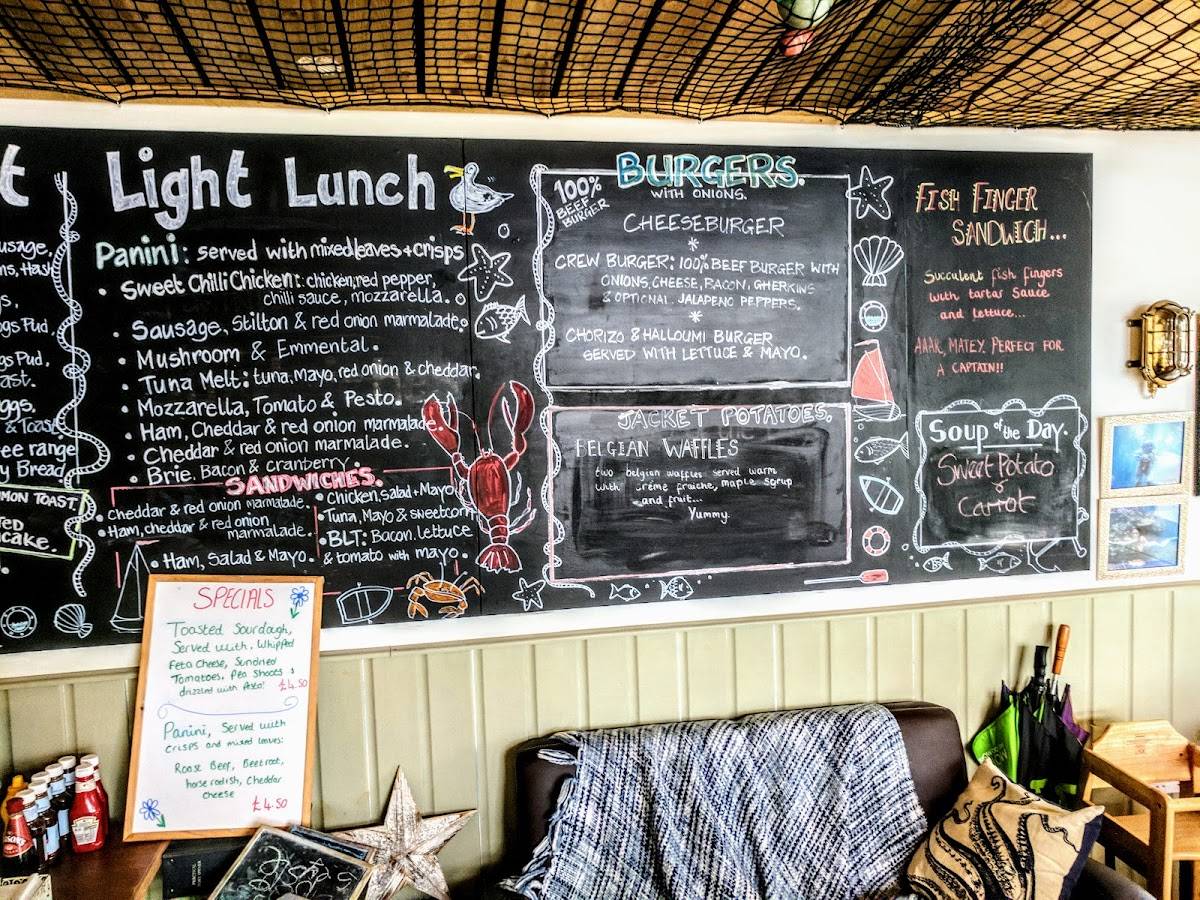 t
usage,
ns, Hash
gs Pud,
ggs Pud,
ast.
ggs.
& Toast
ee range
y Bread
MON TOAST,
cake.
Light Lunch
Panini: served with mixed leaves + crisps
• Sweet Chilli Chicken: chicken, red pepper,
chilli sauce, mozzarella.
• Sausage, Stilton & red onion marmalade
• Mushroom & Emmental.
• Tuna Melt: tuna, mayo, red onion & cheddar.
• Mozzarella, Tomato & Pesto.
• Ham, Cheddar & red onion marmalade.
• Cheddar & red onion marmalade.
• Brie, Bacon & cranberry.
SANDWICHES.
• Cheddar & red onion marmalade.
• Ham, cheddar & red onion
marmalade.
• Ham, Salad & Mayo.
• Chicken, salad + Mayo
• Tuna, Mayo & sweetcorn
• BLT: Bacon, lettuce
& tomato with mayo.
BURGERS.
WITH ONIONS.
100%
BEEF
BURGER
CHEESEBURGER
*
CREW BURGER: 100% BEEF BURGER WITH
ONIONS, CHEESE, BACON, GHERKINS
& OPTIONAL JALAPENO PEPPERS.
*
CHORIZO & HALLOUMI BURGER
SERVED WITH LETTUCE & MAYO.
JACKET POTATOES.
BELGIAN WAFFLES
two belgian waffles served warm
with crème fraiche, maple syrup
and fruit...
Yummy.
FISH FINGER
SANDWICH...
Succulent fish fingers
with tartar sauce
and lettuce...
AAAR, MATEY. PERFECT FOR
A CAPTAIN!!
Soup of the Day.
Sweet Potato
&
Carrot
SPECIALS
Toasted Sourdough,
Served with, Whipped
Feta Cheese, Sundried
Tomatoes, Pea Shoots &
drizzled with Pesto! £4.50
Panini, Served with
crisps and mixed leaves:
Roast Beef, Beetroot,
horseradish, Cheddar
cheese
£4.50